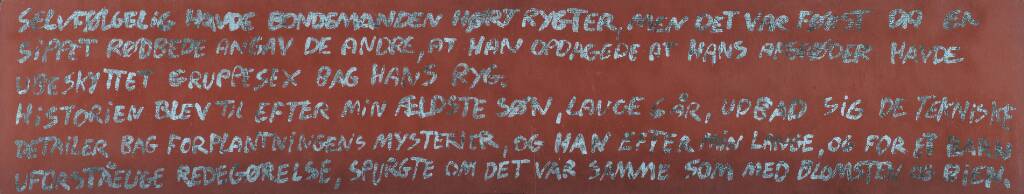 SELVFØLGELIG HAVDE BONDEMANDEN HØRT RYGTER, MEN DET VAR FØRST DA EN
SIPPET RØDBEDE ANGAV DE ANDRE, AT HAN OPDAGEDE AT HANS HAVDE
UBESKYTTET GRUPPESEX BAG HANS RYG.
HISTORIEN BLEV TIL EFTER MIN ÆLDSTE SØN, LAUGE 6 ÅR, UDBAD SIG DE TEKNISKE
DETAILER BAG FORPLANTNINGENS MYSTERIER, OG HAN EFTER MIN LANGE, OG FOR ET BARN
UFORSTÅELIGE REDEGØRELSE, SPURGTE OM DET VAR SAMME SOM MED BLOMSTEN OG BIEN.